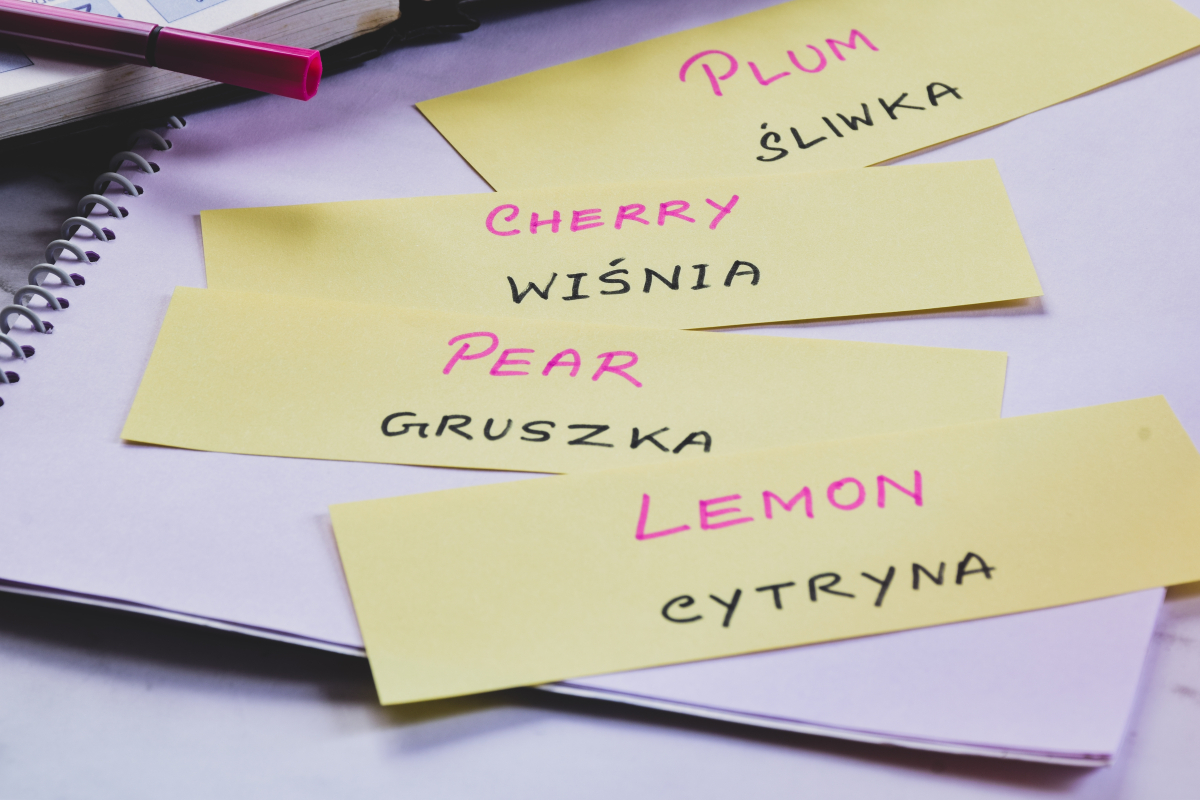 PLUM
ŚLIWKA
CHERRY
WIŚNIA
PEAR
GRUSZKA
LEMON
CYTRYNA